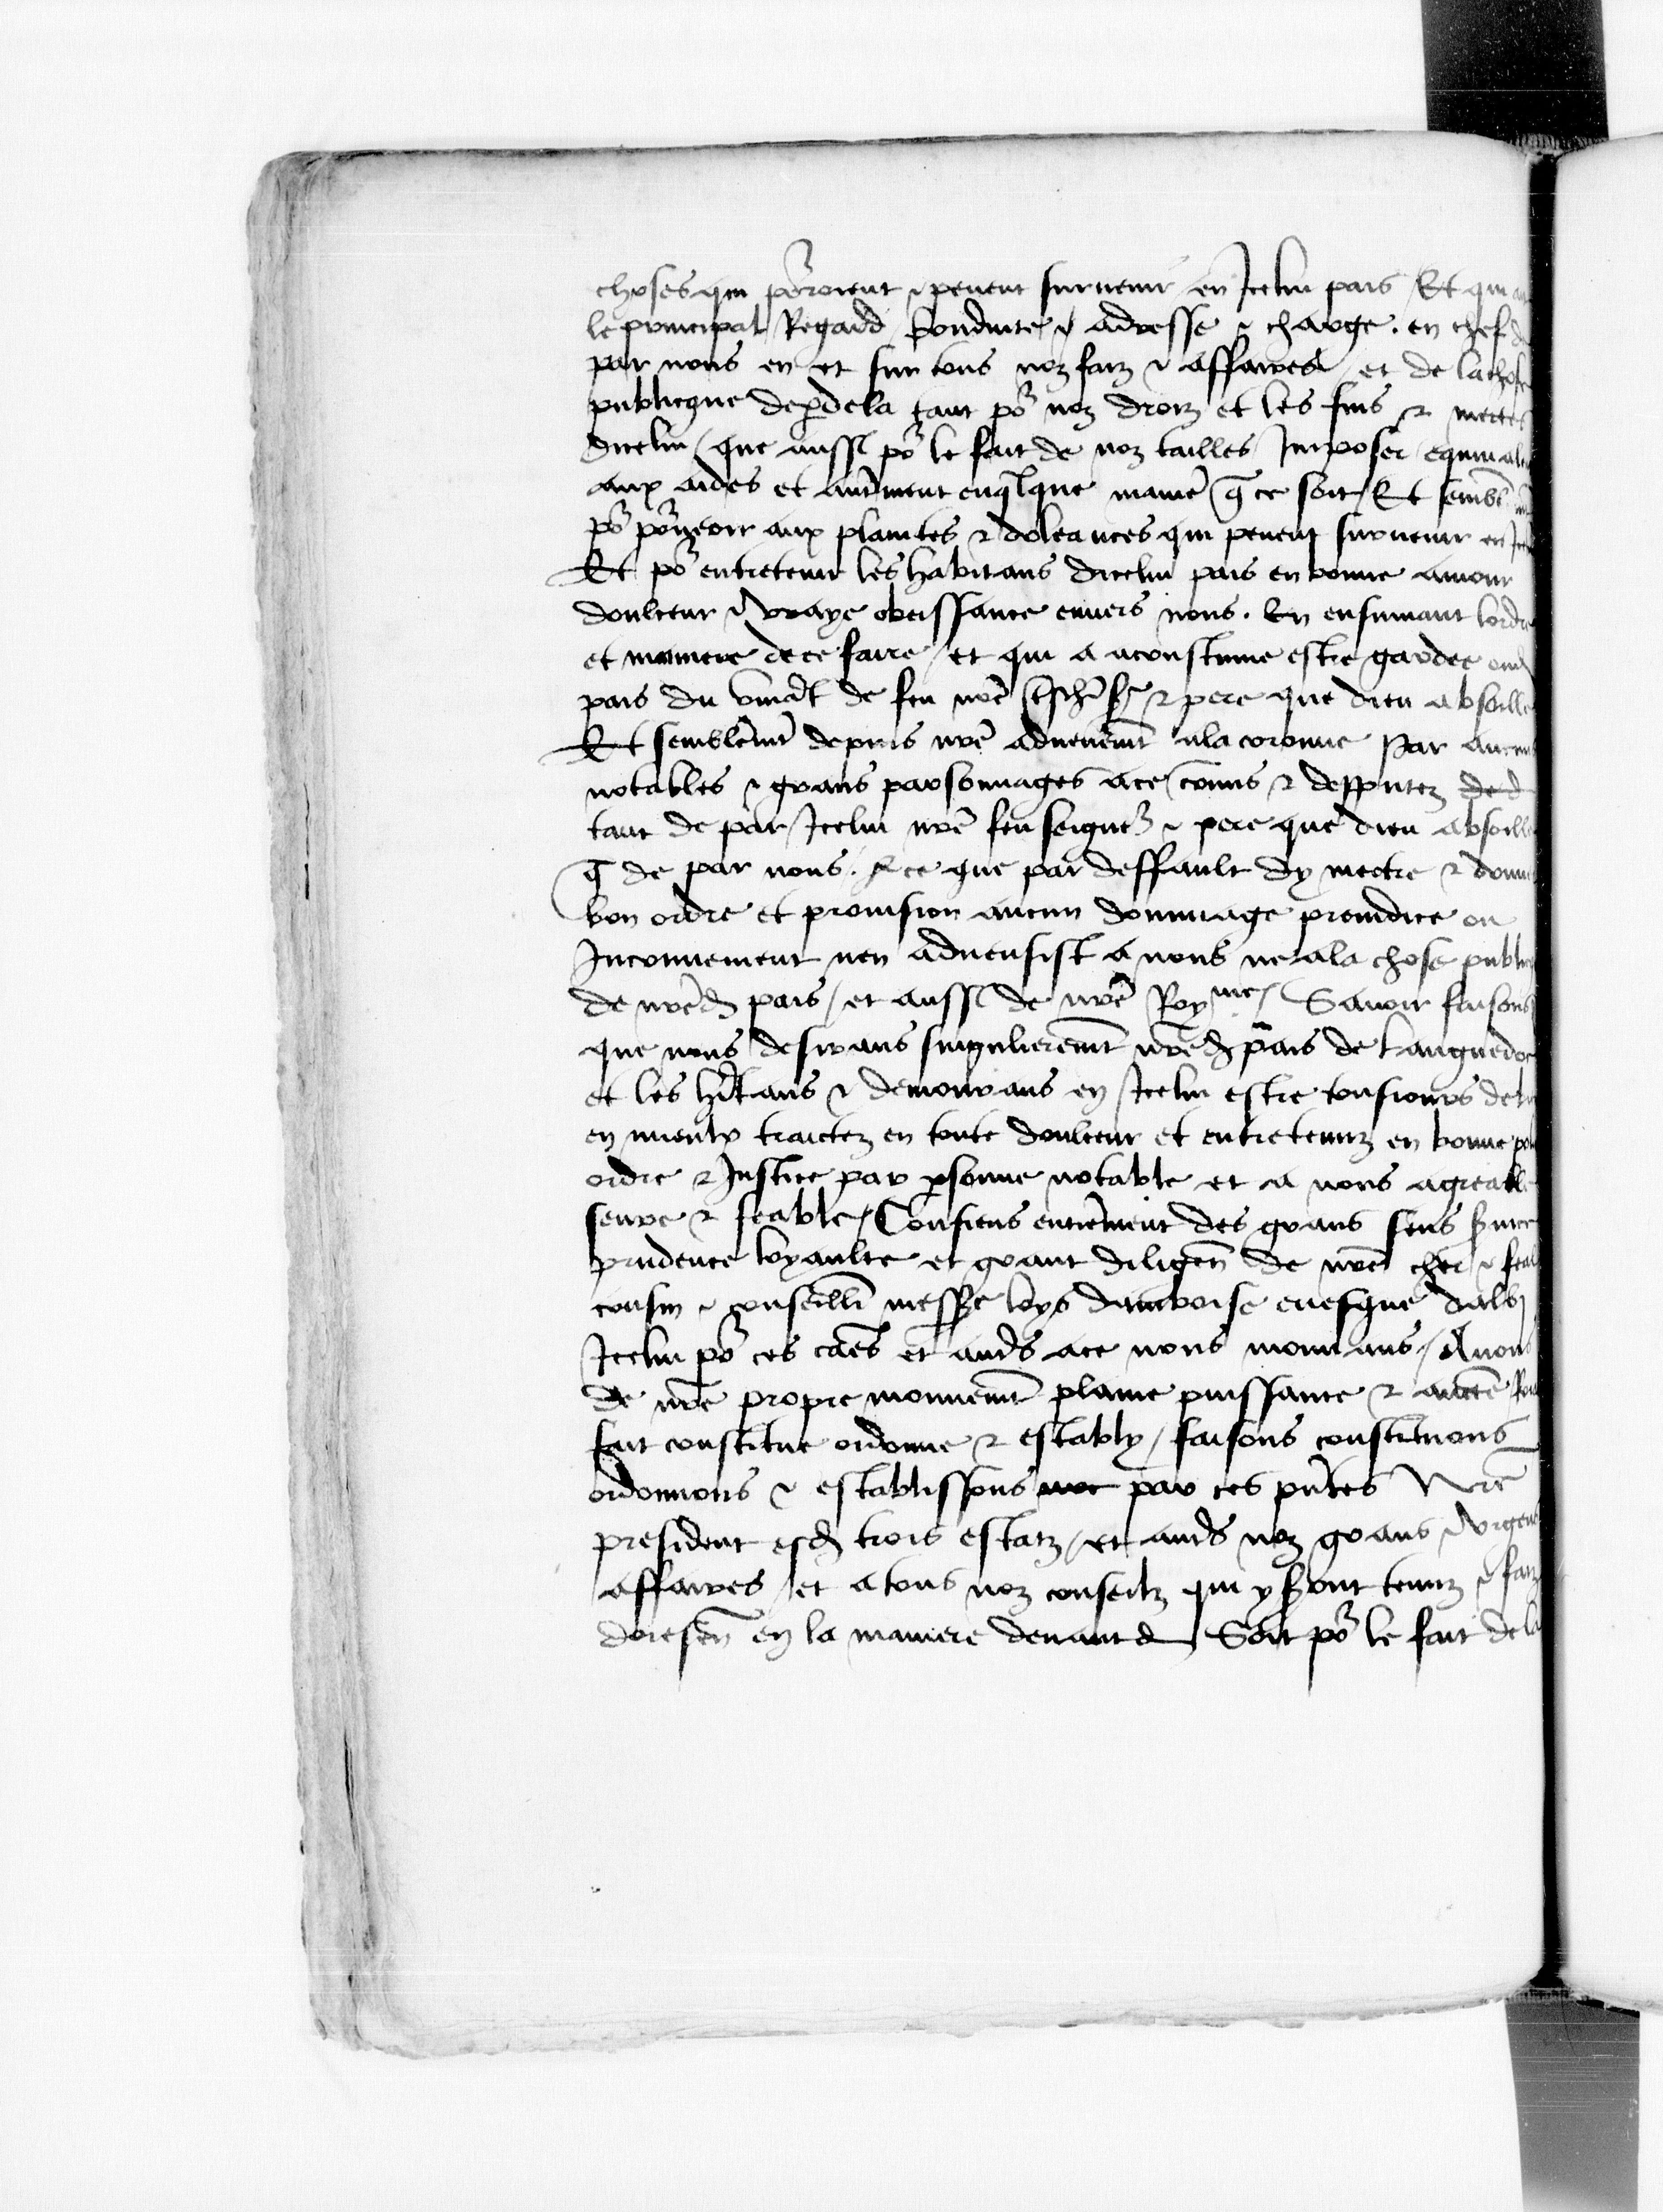 choses qui po'roient & peuent suruenir en Icelui pais Et qui
le principal Regard conduite & adresse & charge . en chef
par nous en et sur tous noz faiz & affaires et de la chose
publicque dep dela tant po' noz droiz et les fins & mectes
dicelui / que aussi po' le fait de noz tailles / Imposer
aux aides et aut'ment en q'lque manie' q ce soit / Et sembl'
po' po'ueoir aux plaintes & doleances qui peuent suruenir en
Et po' entretenir les habitans dicelui pais en bonne amour
doulceur & vraye obeissance enuers nous . En ensuiuant lordre
et maniere de ce faire / et qui a acoustume estre gardee
pais du viua't de feu nre tsch'r sr & pere que dieu absoille
Et semble'mt depuis nre aduenemt a la coronne Par aucuns
notables & grans parsonnages a ce commis & depputez
tant de par Icelui nre feu seigne' & pere que dieu absoille
q de par nous . A ce que par deffault dy mectre &
bon ordre et prouision aucun dommage preiudice ou
Inconuenient nen aduensist a nous ne a la chose
de nred pais / et aussi de nre Royme / Sauoir faisons
que nous desirans singulieremt nred pais de Languedoc
et les h'itans & demourans en Icelui estre tousiours
en mieulx traictez en toute doulceur et entretenuz en bonne
ordre & Justice par psonne notable et a nous agreable
seure & feable / Confiens entie'ment des grans sens
prudence loyaulte et grant diligen de nre cher &
cousin & conseilli' messe loys damboise euesque dalby
Icelui po' ces caes et au's a ce nous mouuans / Auons
de nre propre mouuemt plaine puissance & aucte
fait constitue ordonne & estably / faisons constituons
ordonnons & establissons par ces pntes Nre
president esd trois estatz / et au's noz grans & vrgens
affaires / et a tous noz conseilz qui y s'ont tenuz & faiz
doresen en la maniere deuant d Soit po' le fait de la